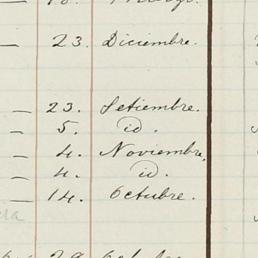 — 23. Diciembre.
— 23. Setiembre.
— 5. id.
— 4. Noviembre,
— 4. id.
— 14. Octubre.
29 Octubre